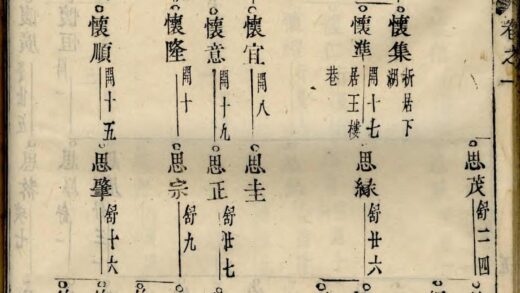 卷之一
思茂 舒二四
懷集 析居下湖
懷準 閗十七 居王樓巷
思緑 舒廿六
懷宜 閗八
思圭
懷意 閗十九
思正 舒廿七
懷隆 閗十
思宗 舒九
懷順 閗十五
思肇 舒十六